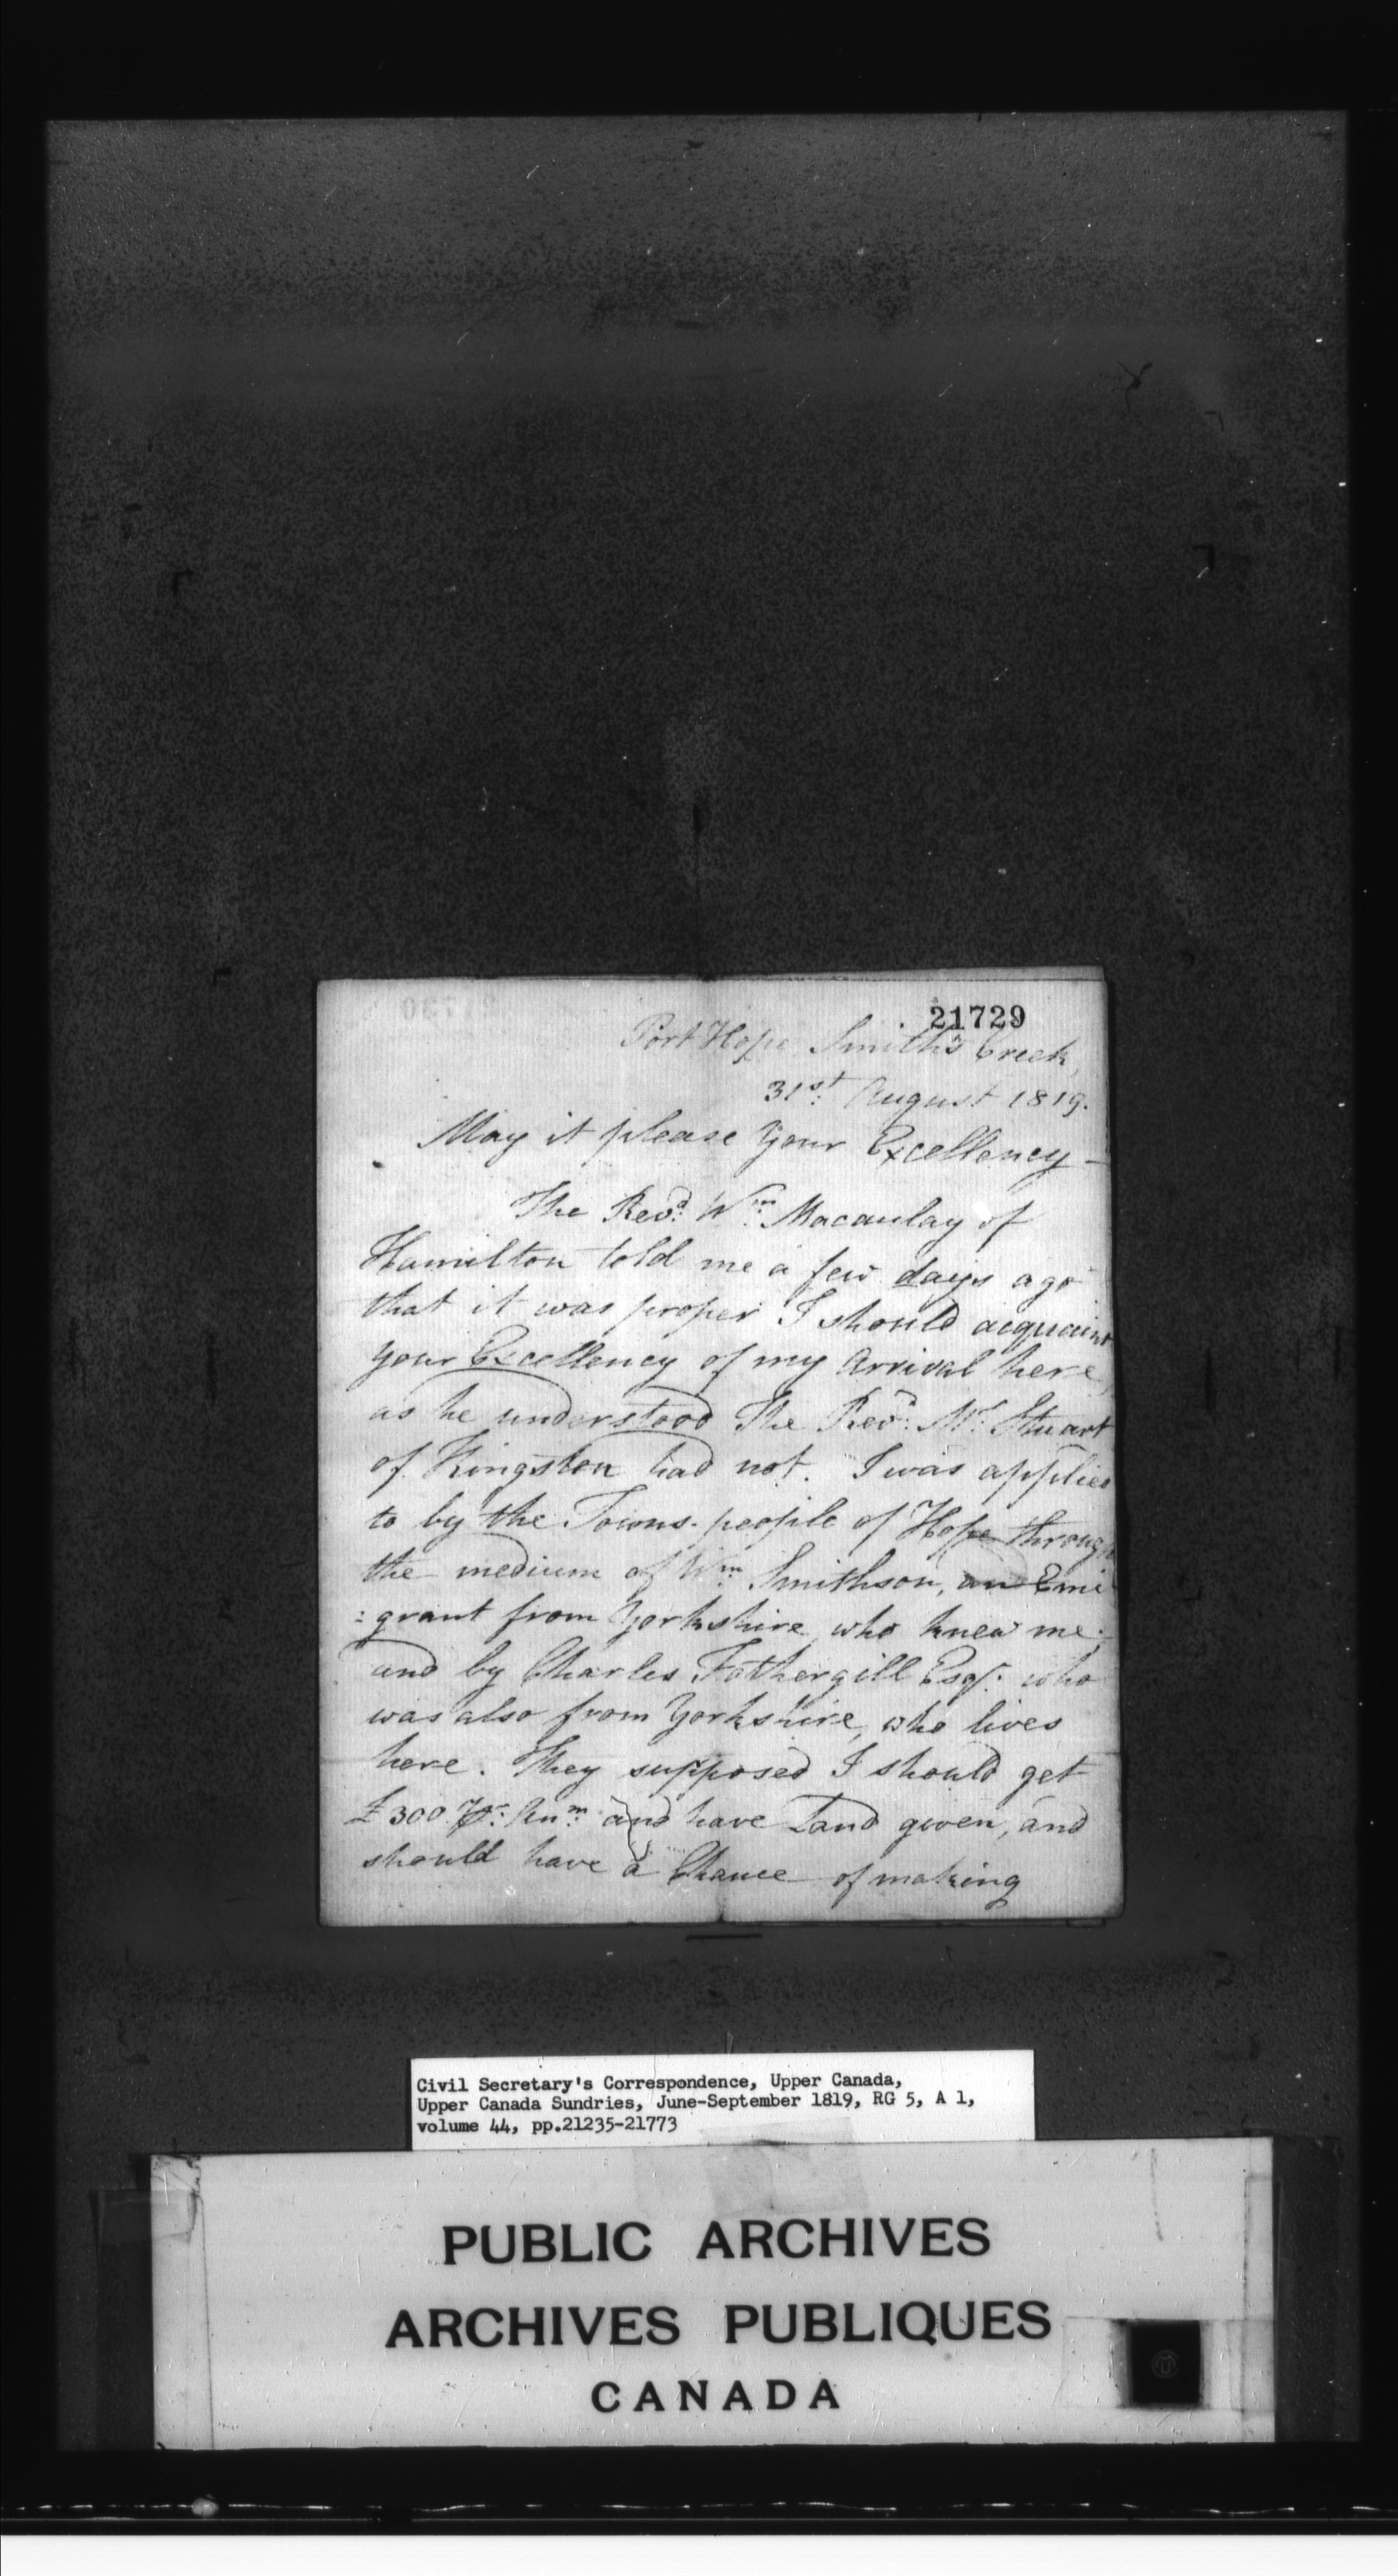 21729
Port Hope Smith's Creek,
31st: August 1819.
May it please Your Excellency –
The Revd: Wm: Macaulay of
Hamilton told me a few days ago
that it was proper I should acquaint
Your Excellency of my Arrival here,
as he understood The Revd: Mr: Stuart
of Kingston had not. I was applied
to by the Towns-people of Hope through
the medium of Wm Smithson, an Emi
:grant from Yorkshire, who knew me;
and by Charles Fothergill Esqr: who
was also from Yorkshire, who lives
here. They supposed I should get
£300 Pr: Anm: and have Land given, and
should have a Chance of making
Civil Secretary's Correspondence, Upper Canada,
Upper Canada Sundries, June-September 1819, RG 5, A 1,
volume 44, pp.21235-21773
PUBLIC ARCHIVES
ARCHIVES PUBLIQUES
CANADA